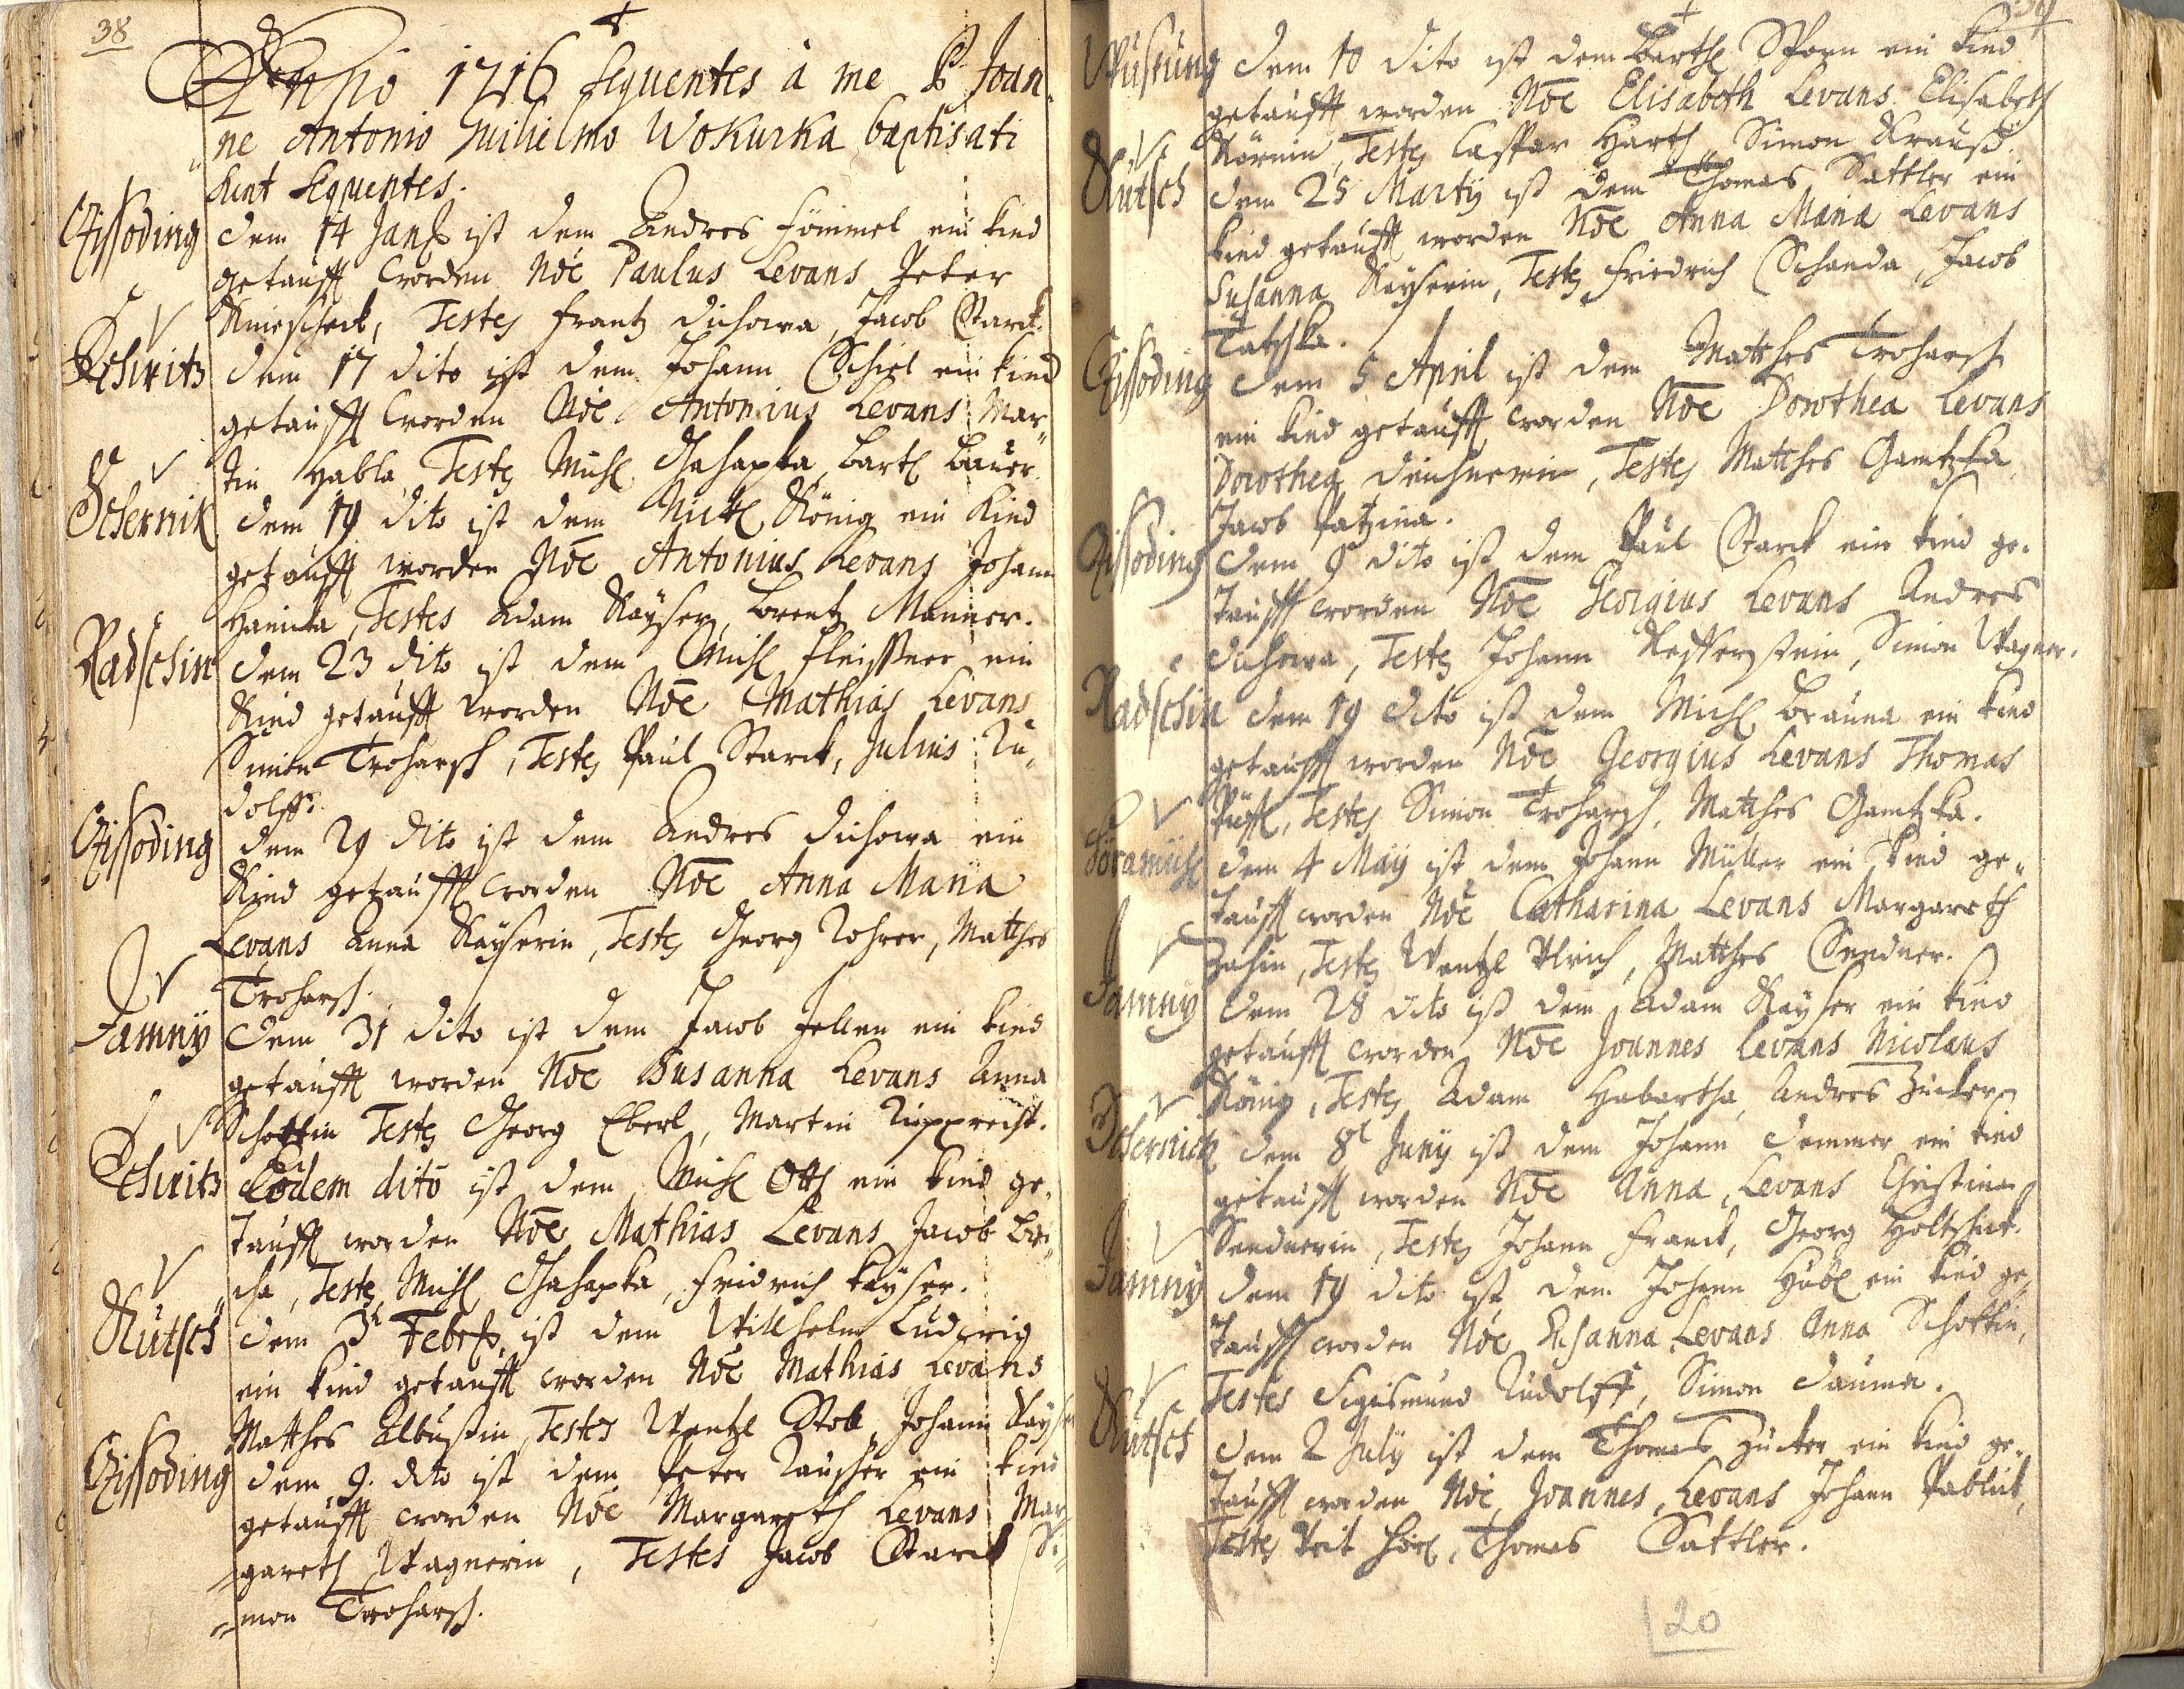 38
Anno 1716 sequentes à me P. Joan-
ne Antonio Guilielmo Wokurka baptisati
sunt sequentes.
Czissoding dem 14 Jan: ist dem Andres Himmel ein kind
getaufft worden Nõe Paulus Levans Peter
Testes Frantz Dichowa, Jacob Starck.
Pschiritz dem 17 dito ist dem Johann Schiel ein kind
getaufft worden Nõe Antonius Levans Mar-
tin Habla, Testes Michl Bartl Bauer.
Tschernik dem 19 dito ist dem Nickl König ein Kind
getaufft worden Nõe Antonius Levans Johann
Testes Adam Kayser, Lorentz
Radschin dem 23 dito ist dem Michl Fleissner ein
Kind getaufft worden Nõe Mathias Levans
Simon Troharsch, Testes Paul Starck, Julius Ru-
dolff.
Czissoding dem 29 dito ist dem Andres Dichowa ein
Kind getaufft worden Nõe Anna Maria
Levans Anna Kayserin, Testes Georg Rohrer, Matthes
Troharsch.
Jamny dem 31 dito ist dem Jacob Jellen ein kind
getaufft worden Nõe Susanna Levans Anna
Schottin Testes Georg Eberl, Martin Rupprecht.
Pschiritz Eodem dito ist dem Michl Ott ein kind ge-
taufft worden Nõe Mathias Levans Jacob
Testes Michl Fridrich Kayser.
Kutsch dem 3t Febr: ist dem Willhelm Ludwig
ein kind getaufft worden Nõe Mathias Levans
Matthes Testes Wentzl Stob, Johann Kayser
Czissoding dem 9. dito ist dem Peter Rauscher ein kind
getaufft worden Nõe Margareth Levans Mar-
gareth Wagnerin, Testes Jacob Starck Si-
mon Troharsch.
39
Wustung dem 10 dito ist dem Bartl Sporn ein kind
getaufft worden Nõe Elisabeth Levans Elisabeth
Körnin, Testes Caspar Harth, Simon Krauß.
Kutsch dem 25 Martij ist dem Thomas Sattler ein
kind getaufft worden Nõe Anna Maria Levans
Susanna Kayserin, Testes Friedrich Schanda, Jacob
Tatschka.
Czissoding dem 5 April ist dem Matthes Troharsch
ein kind getaufft worden Nõe Dorothea Levans
Dorothea Testes Matthes Gamtzka
Jacob Patzina.
Czissoding dem 9 dito ist dem Paul Starck ein kind ge-
taufft worden Nõe Georgius Levans Andres
Dichowa, Testes Johann Simon Wagner.
Radschin dem 19 dito ist dem Michl Brauna ein kind
getaufft worden Nõe Georgius Levans Thomas
Testes Simon Troharsch, Matthes Gamtzka.
dem 4 Maÿ ist dem Johann Müller ein kind ge-
taufft worden Nõe Catharina Levans Margareth
Zahin, Testes Wentzl Ulrich, Matthes Sendner.
Jamny dem 28 dito ist dem Adam Kayser ein kind
getaufft worden Nõe Joannes Levans Nicolaus
König, Testes Adam Habartha, Andres Zucker
Tschernick dem 8t Junij ist dem Johann Demmer ein kind
getaufft worden Nõe Anna, Levans Christina
Sendnerin, Testes Johann Franck, Georg
Jamny dem 19 dito ist dem Johann Hübl ein kind ge-
taufft worden Nõe Susanna Levans Anna Schottin,
Testes Sigismund Rudolff, Simon Dauma.
Kutsch dem 2 Julij ist dem Thomas Zucker ein kind ge-
taufft worden Nõe Joannes, Levans Johann
Testes Veit Thomas Sattler.
20